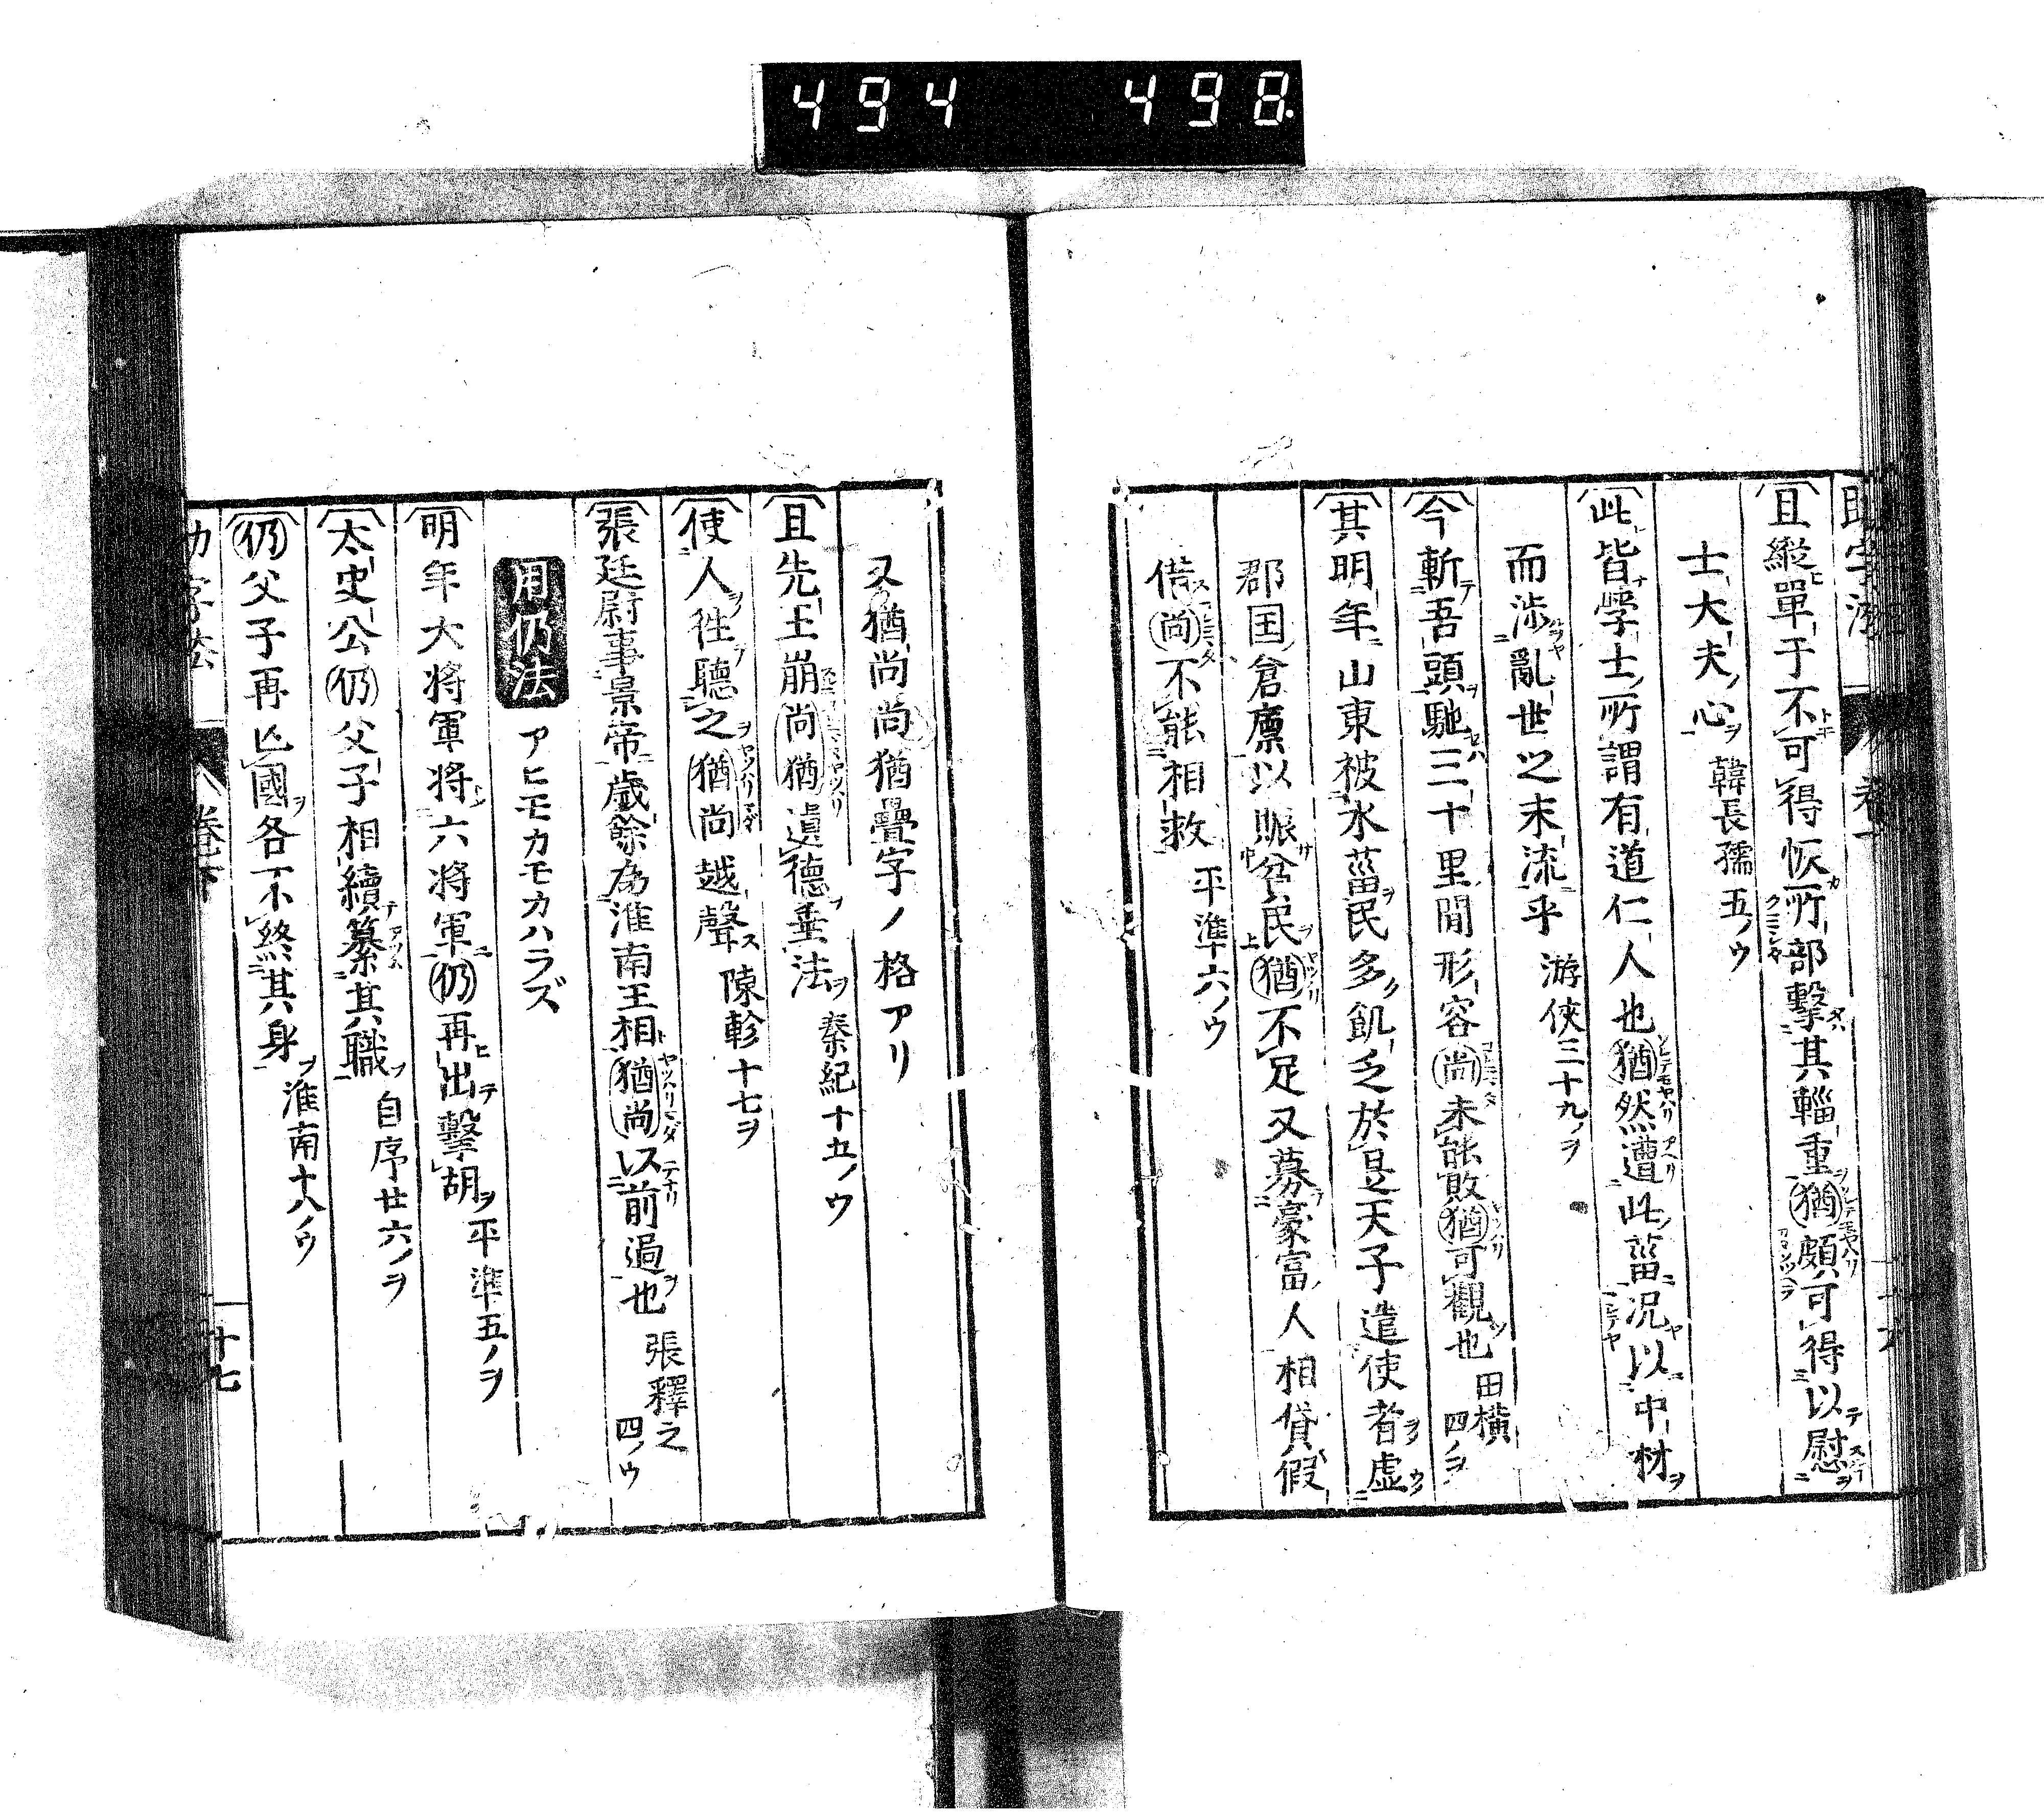 494 498
且縱單于不可得恢所部擊其輜重猶頗可得以慰
士大夫心 韓長孺五ノウ
此皆學士所謂有道仁人也猶然遭此菑況以中材
而涉亂世之末流乎 游俠三十九ノヲ
今斬吾頭馳三十里間形容尚未能敗猶可觀也 田橫四ノヲ
其明年山東被水菑民多飢乏於是天子遣使者虛
郡国倉廩以賑貧民猶不足又募豪富人相貸假
尚不能相救 平準六ノウ
又猶尚尚猶疊字ノ格アリ
且先王崩尚猶遺德垂法 秦紀十五ノウ
使人往聽之猶尚越聲 陳軫十七ヲ
張廷尉事景帝歲餘為淮南王相猶尚以前過也 張釋之四ノウ
用仍法 アヒモカモカハラズ
明年大將軍將六將軍仍再出擊胡 平準五ノヲ
太史公仍父子相續纂其職 自序廿六ノヲ
仍父子再亾國各不終其身 淮南十八ノウ
十七